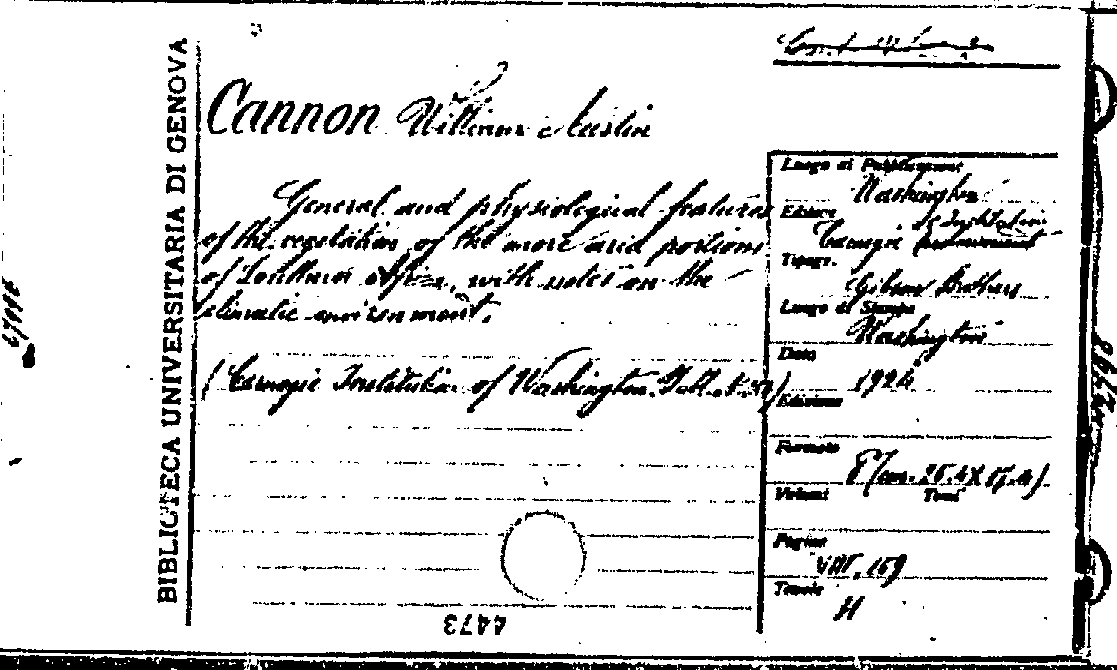 BIBLIOTECA UNIVERSITARIA DI GENOVA
Cannon William Austin
General and physiological features
of the vegetation of the more arid portions
of Southern Africa, with notes on the
climatic environment.
(Carnegie Institution of Washington. Publ. N.
Luogo di Pubblicazione
Washington
Editore
Carnegie Institution
Tipogr.
Gibson Brothers
Luogo di Stampa
Washington
Data
1924
Edizione
Formato
8° (cm. 25.4 X 17.4)
Volumi Tomi
Pagine
VIII, 159
Tavole
4473